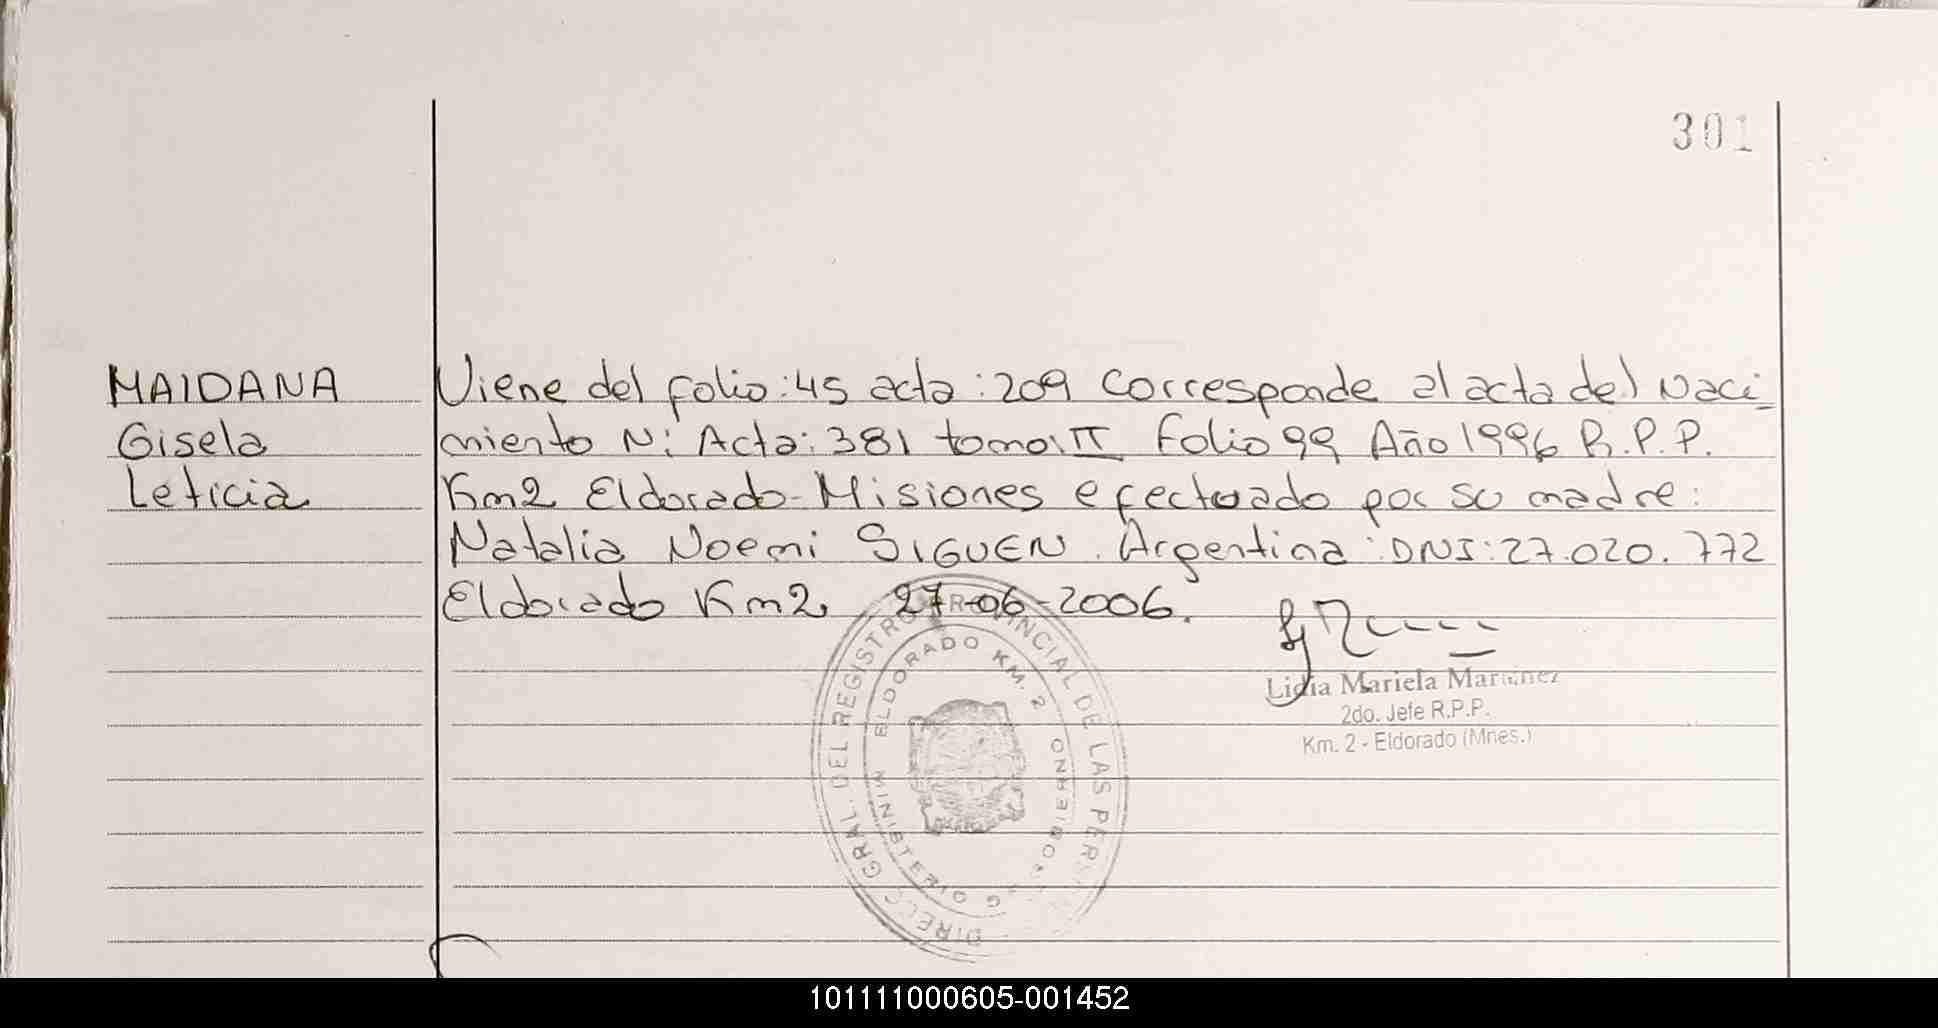 301
MAIDANA
Gisela
Leticia
Viene del folio: 45 acta: 209 corresponde al acta del Naci_
miento N: Acta: 381 tomo: II Folio 99 Año 1996 R.P.P.
Km2 Eldorado-Misiones efectuado por su madre:
Natalia Noemi SIGUEN. Argentina: DNI: 27.020.772
Eldorado Km2, 27-06-2006.
Lidia Mariela Martinez
2do. Jefe R.P.P.
Km. 2 - Eldorado (Mnes.)
DIRECC GRAL. DEL REGISTRO PROVINCIAL DE LAS PER
ELDORADO KM. 2
MINISTERIO
GOBIERNO
101111000605-001452